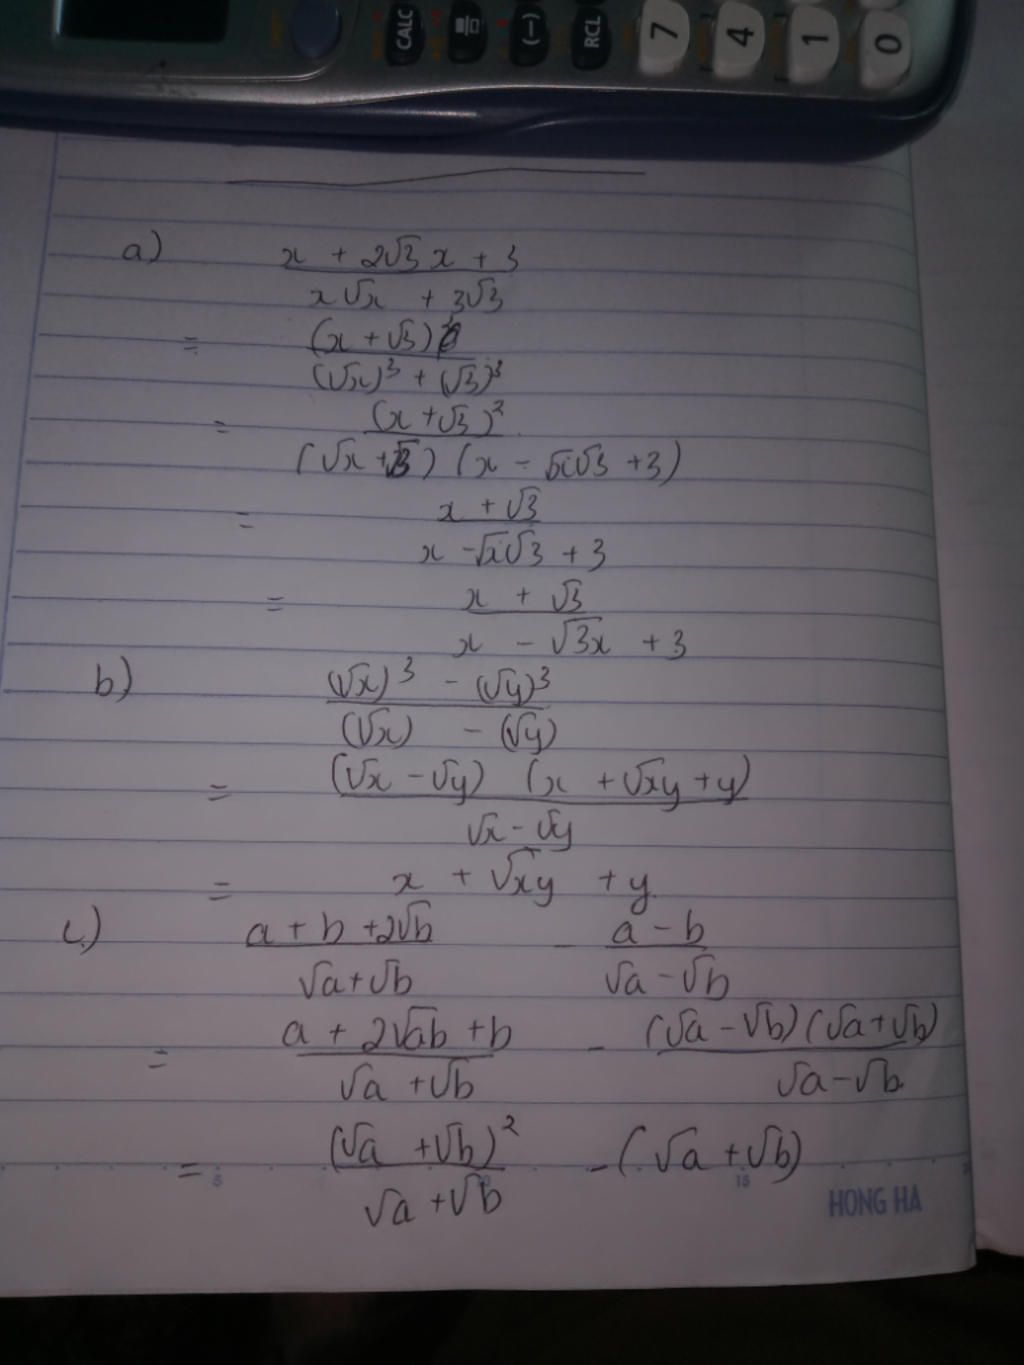 CALC (−) RCL 7 4 1 0
a) x + 2√3 x + 3
x√x + 3√3
= (x + √3)²
(√x)³ + (√3)³
= (x + √3)²
(√x + √3) (x - √x√3 + 3)
= x + √3
x - √x√3 + 3
= x + √3
x - √3x + 3
b) (√x)³ - (√y)³
(√x) - (√y)
= (√x - √y) (x + √xy + y)
√x - √y
= x + √xy + y
c) a + b + 2√b - a - b
√a + √b √a - √b
= a + 2√ab + b - (√a - √b)(√a + √b)
√a + √b √a - √b
= (√a + √b)² - (√a + √b)
√a + √b
5 10 15
HONG HA